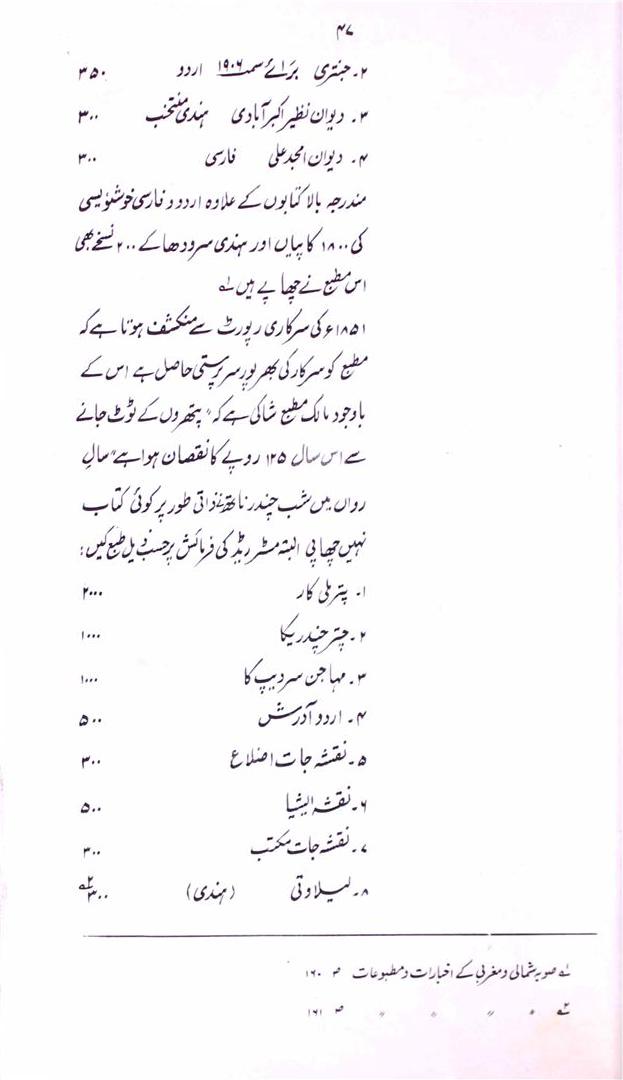 ۴۷
۲۔ جنتری برائے سمت ۱۹۰۶ اردو ۳۵۰
۳۔ دیوان نظیر اکبر آبادی ہندی منتخب ۳۰۰
۴۔ دیوان امجد علی فارسی ۳۰۰
مندرجہ بالا کتابوں کے علاوہ اردو و فارسی خوشنویسی
کی ۱۸۰۰ کاپیاں اور ہندی سرودھا کے ۲۰۰ نسخے بھی
اس مطبع نے چھاپے ہیں لے
۱۸۵۱ء کی سرکاری رپورٹ سے منکشف ہوتا ہے کہ
مطبع کو سرکار کی بھرپور سرپرستی حاصل ہے اس کے
باوجود مالک مطبع شاکی ہے کہ "پتھروں کے ٹوٹ جانے
سے اس سال ۱۲۵ روپے کا نقصان ہوا ہے" سالِ
رواں میں شب چندر ناتھ نے ذاتی طور پر کوئی کتاب
نہیں چھاپی البتہ مسٹر ریڈ کی فرمائش پر حسب ذیل طبع کیں:
۱۔ پتر ملی کار ۲۰۰۰
۲۔ چتر چندریکا ۱۰۰۰
۳۔ مہاجن سر دیپ کا ۱۰۰۰
۴۔ اردو آدرش ۵۰۰
۵۔ نقشہ جات اضلاع ۳۰۰
۶۔ نقشہ ایشیا ۵۰۰
۷۔ نقشہ جات مکتب ۳۰۰
۸۔ لیلاوتی (ہندی) ۳۰۰ ۲ے
لے صوبہ شمالی و مغربی کے اخبارات و مطبوعات ص ۱۶۰
۲ے " " " " ص ۱۶۱